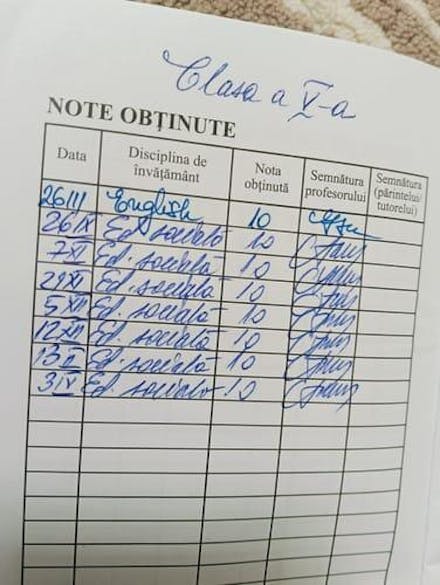 Clasa a V-a
NOTE OBȚINUTE
Data Disciplina de învățământ Nota obținută Semnătura profesorului Semnătura (părintelui/ tutorelui)
26 III English 10
26 IX Ed. socială 10
7 XI Ed. socială 10
29 XI Ed. socială 10
5 XII Ed. socială 10
12 XII Ed. socială 10
13 II Ed. socială 10
3 IV Ed. socială 10